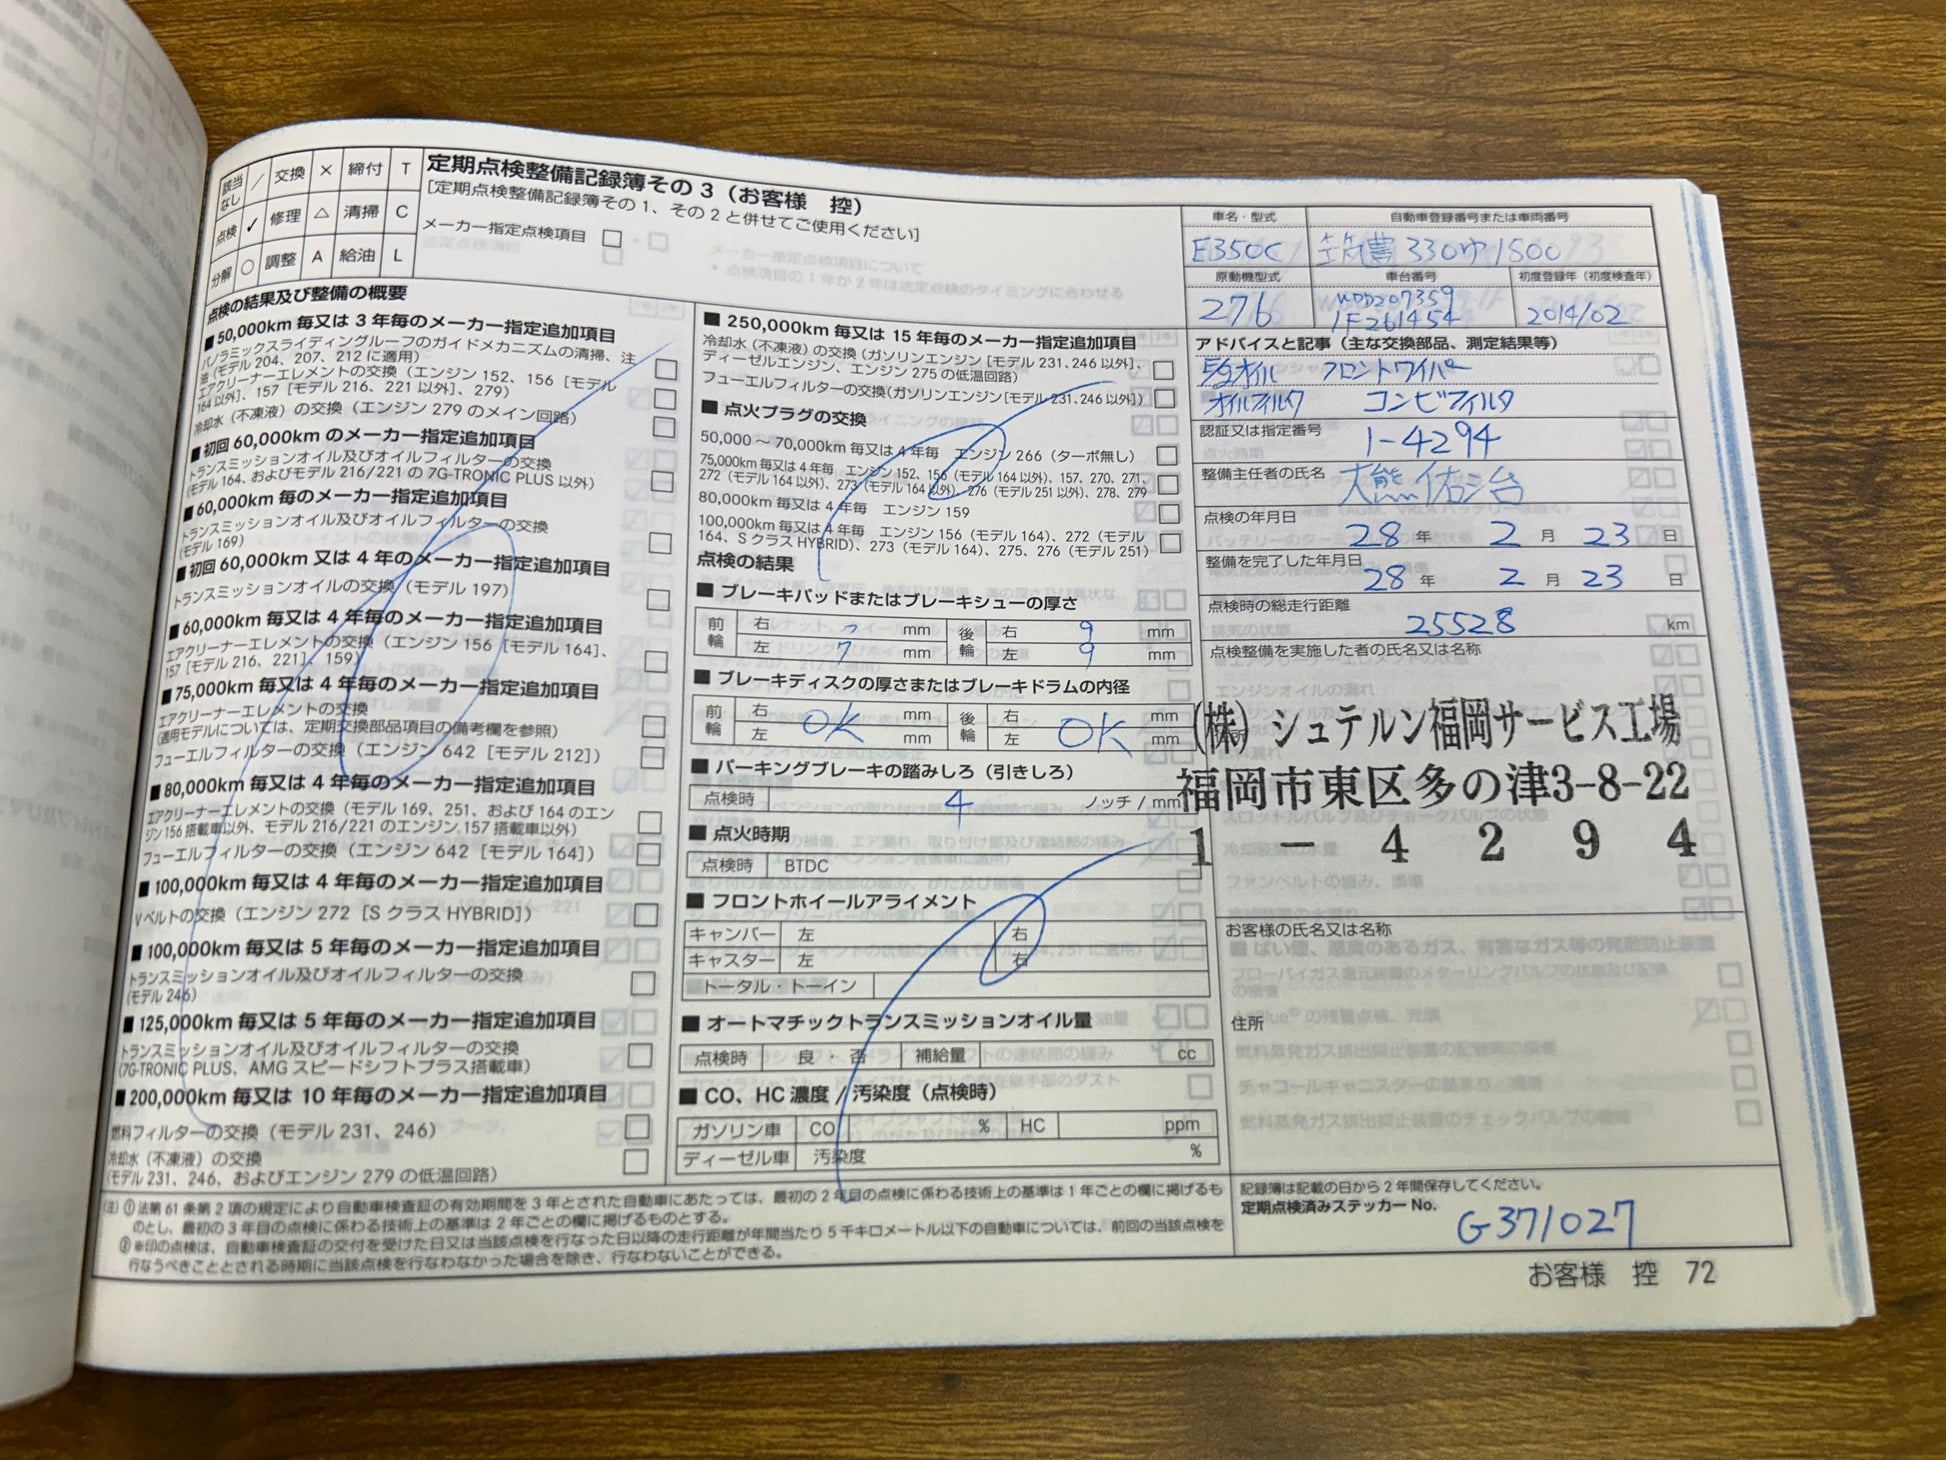 該当なし ／ 交換 × 締付 T
点検 ✓ 修理 △ 清掃 C
分解 ○ 調整 A 給油 L
定期点検整備記録簿その 3（お客様　控）
[定期点検整備記録簿その 1、その 2 と併せてご使用ください]
メーカー指定点検項目 □
点検の結果及び整備の概要
■ 50,000km 毎又は 3 年毎のメーカー指定追加項目
パノラミックスライディングルーフのガイドメカニズムの清掃、注
油（モデル 204、207、212 に適用） □
エアクリーナーエレメントの交換（エンジン 152、156［モデル
164 以外］、157［モデル 216、221 以外］、279） □
冷却水（不凍液）の交換（エンジン 279 のメイン回路） □
■ 初回 60,000km のメーカー指定追加項目
トランスミッションオイル及びオイルフィルターの交換
(モデル 164、およびモデル 216/221 の 7G-TRONIC PLUS 以外) □
■ 60,000km 毎のメーカー指定追加項目
トランスミッションオイル及びオイルフィルターの交換
(モデル 169) □
■ 初回 60,000km 又は 4 年毎のメーカー指定追加項目
トランスミッションオイルの交換（モデル 197） □
■ 60,000km 毎又は 4 年毎のメーカー指定追加項目
エアクリーナーエレメントの交換（エンジン 156［モデル 164］、
157［モデル 216、221］、159） □
■ 75,000km 毎又は 4 年毎のメーカー指定追加項目
エアクリーナーエレメントの交換
(適用モデルについては、定期交換部品項目の備考欄を参照) □
フューエルフィルターの交換（エンジン 642［モデル 212］） □
■ 80,000km 毎又は 4 年毎のメーカー指定追加項目
エアクリーナーエレメントの交換（モデル 169、251、および 164 のエン
ジン 156 搭載車以外、モデル 216/221 のエンジン 157 搭載車以外） □
フューエルフィルターの交換（エンジン 642［モデル 164］） □
■ 100,000km 毎又は 4 年毎のメーカー指定追加項目
V ベルトの交換（エンジン 272［S クラス HYBRID］） □
■ 100,000km 毎又は 5 年毎のメーカー指定追加項目
トランスミッションオイル及びオイルフィルターの交換
(モデル 246) □
■ 125,000km 毎又は 5 年毎のメーカー指定追加項目
トランスミッションオイル及びオイルフィルターの交換
(7G-TRONIC PLUS、AMG スピードシフトプラス搭載車) □
■ 200,000km 毎又は 10 年毎のメーカー指定追加項目
燃料フィルターの交換（モデル 231、246） □
冷却水（不凍液）の交換
(モデル 231、246、およびエンジン 279 の低温回路) □
■ 250,000km 毎又は 15 年毎のメーカー指定追加項目
冷却水（不凍液）の交換（ガソリンエンジン［モデル 231、246 以外］、
ディーゼルエンジン、エンジン 275 の低温回路） □
フューエルフィルターの交換（ガソリンエンジン［モデル 231、246 以外］） □
■ 点火プラグの交換
50,000 ～ 70,000km 毎又は 4 年毎　エンジン 266（ターボ無し） □
75,000km 毎又は 4 年毎　エンジン 152、156（モデル 164 以外）、157、270、271、
272（モデル 164 以外）、273（モデル 164 以外）、276（モデル 251 以外）、278、279 □
80,000km 毎又は 4 年毎　エンジン 159 □
100,000km 毎又は 4 年毎　エンジン 156（モデル 164）、272（モデル
164、S クラス HYBRID）、273（モデル 164）、275、276（モデル 251） □
点検の結果
■ ブレーキパッドまたはブレーキシューの厚さ
前輪 右 7 mm 後輪 右 9 mm
左 7 mm 左 9 mm
■ ブレーキディスクの厚さまたはブレーキドラムの内径
前輪 右 OK mm 後輪 右 OK mm
左 mm 左 mm
■ パーキングブレーキの踏みしろ（引きしろ）
点検時 4 ノッチ / mm
■ 点火時期
点検時 BTDC
■ フロントホイールアライメント
キャンバー 左 右
キャスター 左 右
トータル・トーイン
■ オートマチックトランスミッションオイル量
点検時 良・否 補給量 cc
■ CO、HC 濃度 / 汚染度（点検時）
ガソリン車 CO % HC ppm
ディーゼル車 汚染度 %
車名・型式 自動車登録番号または車両番号
E350C 筑豊 330ゆ1800
原動機型式 車台番号 初度登録年（初度検査年）
276 WDD207359 2014/02
1F261454
アドバイスと記事（主な交換部品、測定結果等）
オイル フロントワイパー
オイルフィルタ コンビフィルタ
認証又は指定番号 1-4294
整備主任者の氏名 大熊 佑治
点検の年月日
28 年 2 月 23 日
整備を完了した年月日
28 年 2 月 23 日
点検時の総走行距離
25528 km
点検整備を実施した者の氏名又は名称
(株) シュテルン福岡サービス工場
福岡市東区多の津3-8-22
1 － 4 2 9 4
お客様の氏名又は名称
住所
(注) ① 法第 61 条第 2 項の規定により自動車検査証の有効期間を 3 年とされた自動車にあたっては、最初の 2 年目の点検に係わる技術上の基準は 1 年ごとの欄に掲げるも
のとし、最初の 3 年目の点検に係わる技術上の基準は 2 年ごとの欄に掲げるものとする。
② ※印の点検は、自動車検査証の交付を受けた日又は当該点検を行なった日以降の走行距離が年間当たり 5 千キロメートル以下の自動車については、前回の当該点検を
行なうべきこととされる時期に当該点検を行なわなかった場合を除き、行なわないことができる。
記録簿は記載の日から 2 年間保存してください。
定期点検済みステッカー No.
G371027
お客様　控　72